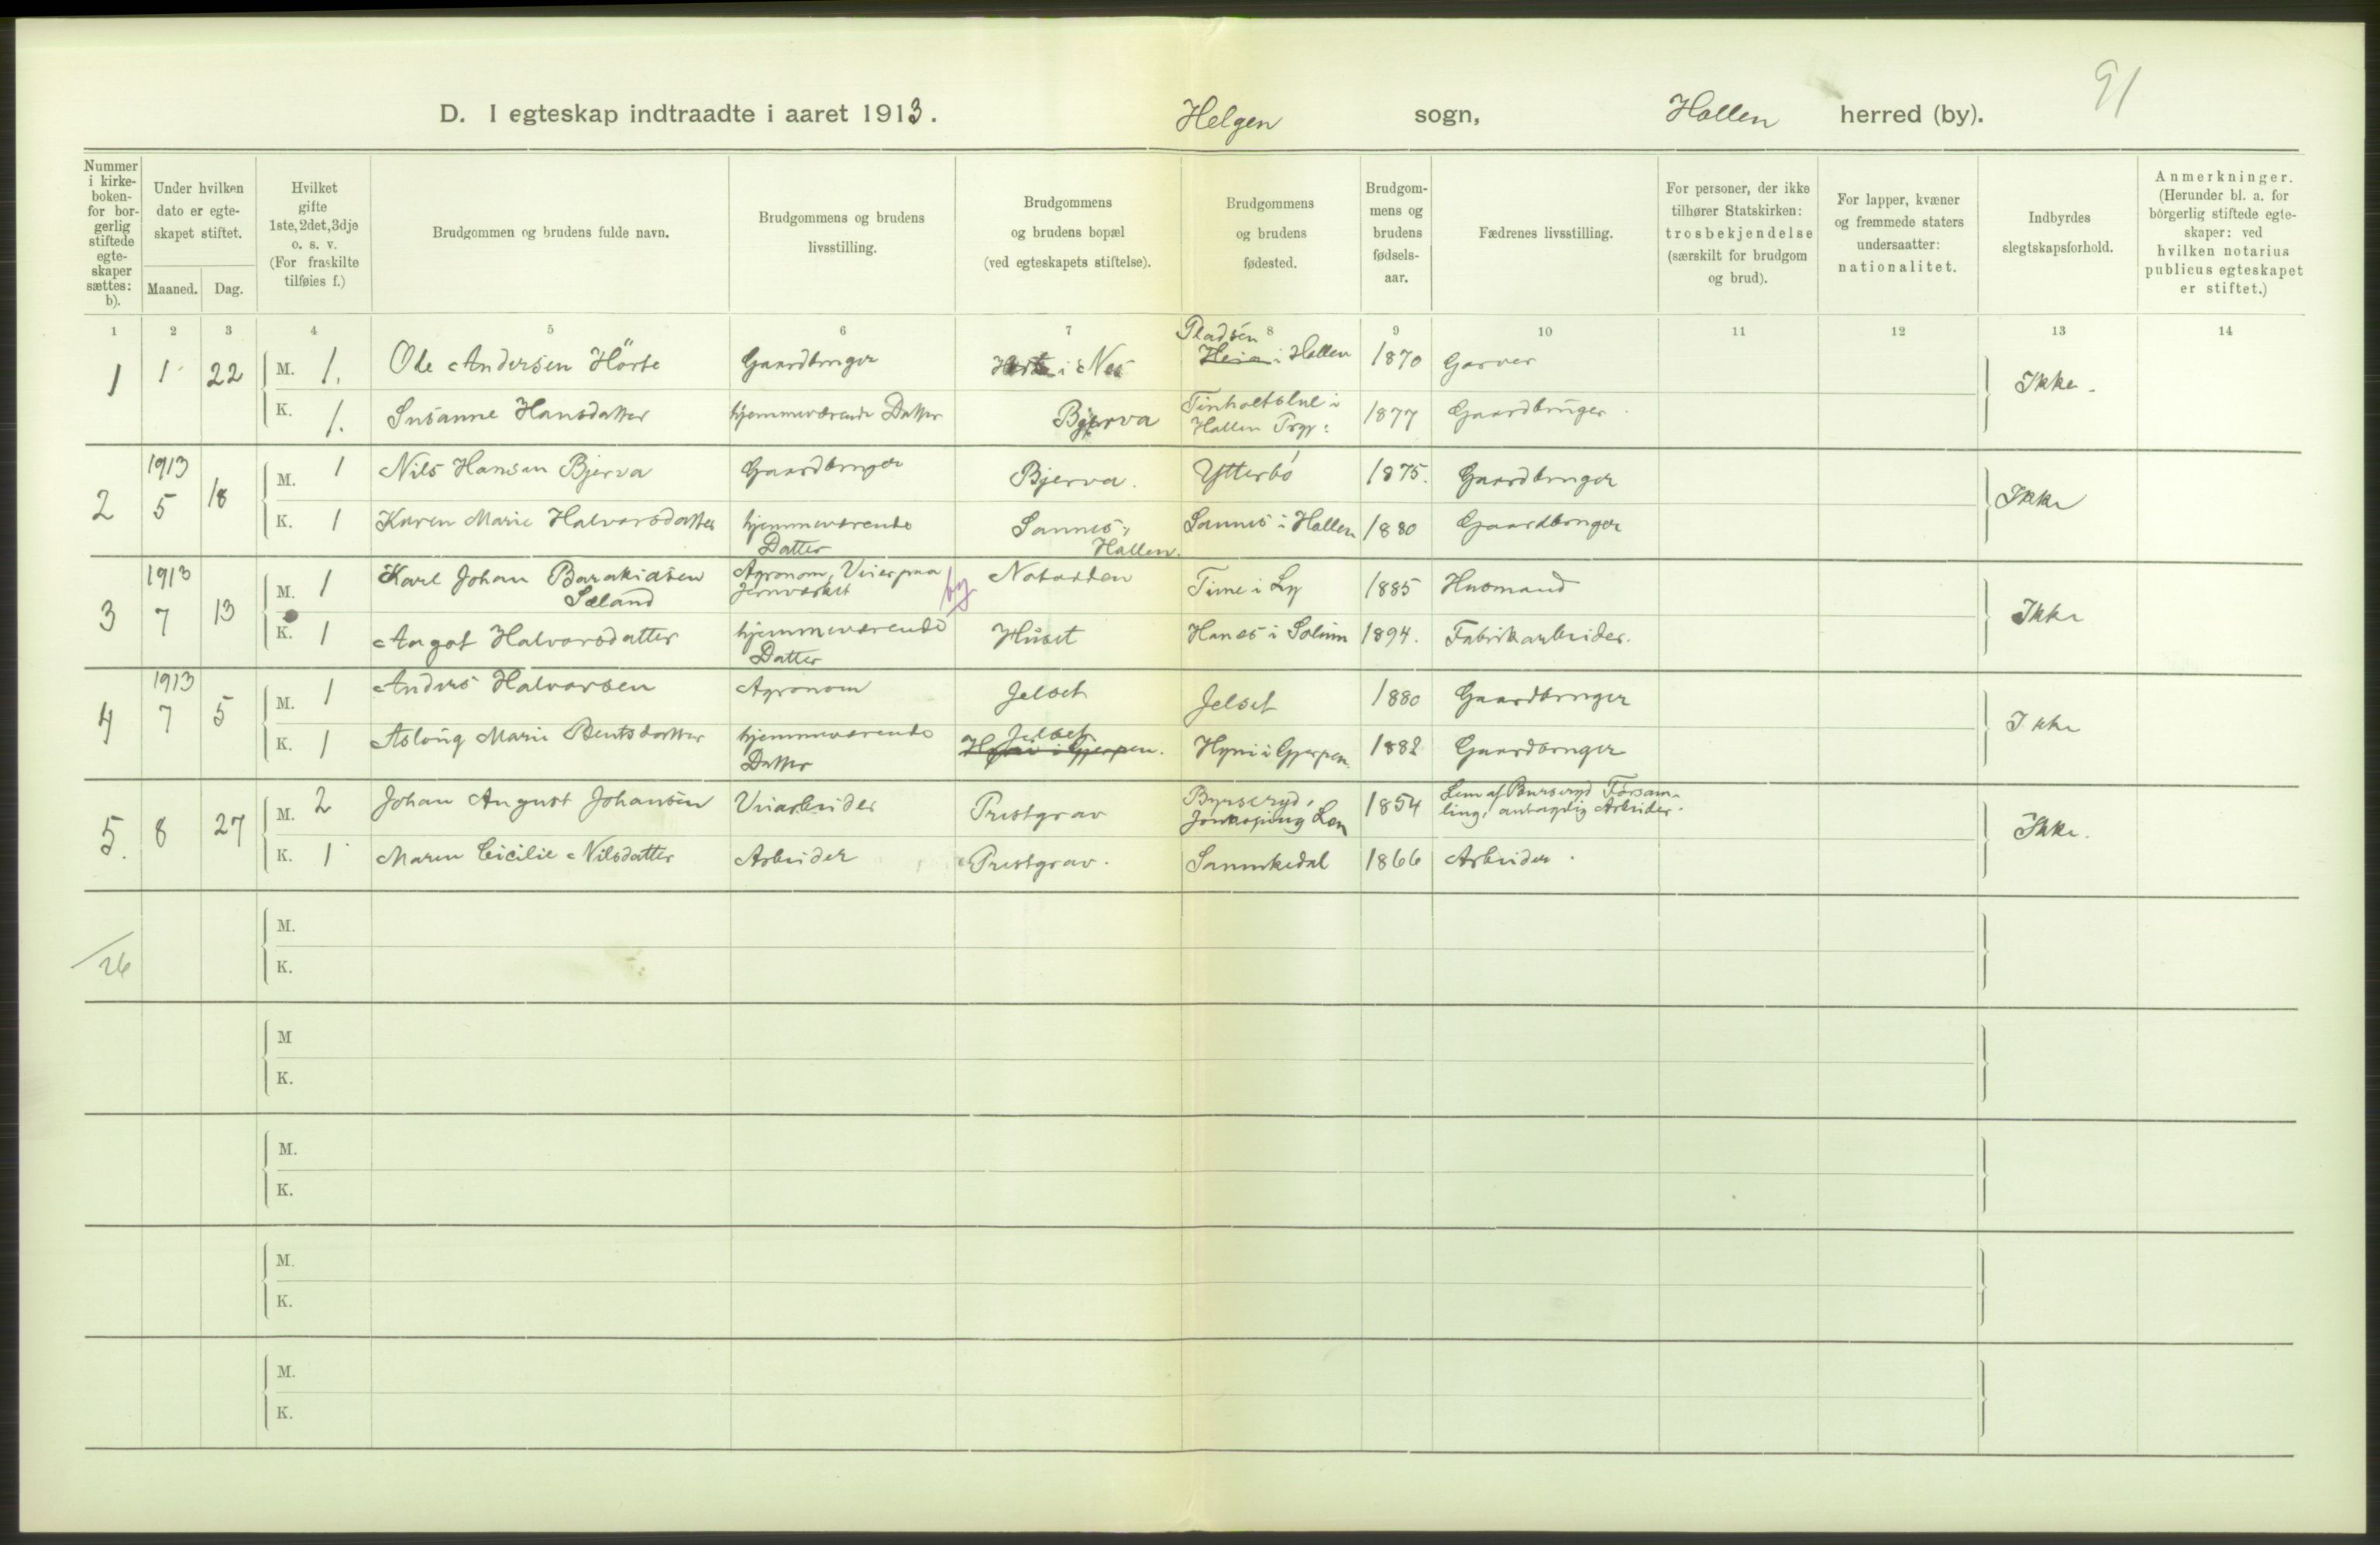 91
D. I egteskap indtraadte i aaret 1913. Helgen sogn, Hollen herred (by).
Nummer i kirke-boken-for bor-gerlig stiftede egte-skaper sættes: b).
Under hvilken dato er egte-skapet stiftet.
Maaned. Dag.
Hvilket gifte 1ste, 2det, 3dje o. s. v. (For fraskilte tilføies f.)
Brudgommen og brudens fulde navn.
Brudgommens og brudens livsstilling.
Brudgommens og brudens bopæl (ved egteskapets stiftelse).
Brudgommens og brudens fødested.
Brudgom-mens og brudens fødsels-aar.
Fædrenes livsstilling.
For personer, der ikke tilhører Statskirken: trosbekjendelse (særskilt for brudgom og brud).
For lapper, kvæner og fremmede staters undersaatter: nationalitet.
Indbyrdes slegtskapsforhold.
Anmerkninger. (Herunder bl. a. for borgerlig stiftede egte-skaper: ved hvilken notarius publicus egteskapet er stiftet.)
1 2 3 4 5 6 7 8 9 10 11 12 13 14
1 1 22 M. 1. Ole Andersen Hörte Gaardbruger i Nes Pladsen Heia i Hollen 1870 Garver Ikke.
K. 1. Susanne Hansdatter hjemmeværende Datter Bjerva Hollen 1877 Gaardbruger.
2 1913 5 18 M. 1 Nils Hansen Bjerva Gaardbruger Bjerva. Ytterbö 1875. Gaardbruger Ikke
K. 1 Karen Marie Halvorsdatter hjemmeværende Datter Sannes, Hollen. Sannes i Hollen 1880 Gaardbruger
3 1913 7 13 M. 1 Karl Johan Barakiasen Sæland Agronom, Viser paa Jernverket by Notodden Time i Ly 1885 Husmand Ikke
K. 1 Aagot Halvorsdatter hjemmeværende Datter Huset Hanes i Solum 1894. Fabrikarbeider.
4 1913 7 5 M. 1 Anders Halvorsen Agronom Jelset Jelset 1880 Gaardbruger Ikke
K. 1 Aslaug Marie Bentsdatter hjemmeværende Datter Jelset Hyni i Gjerpen. Hyni i Gjerpen. 1882 Gaardbruger
5. 8 27 M. 2 Johan August Johansen Veiarbeider Prestgrav Byrseryd, Jönköping Len 1854 Lem af Burseryd Försam-ling, antagelig Arbeider. Ikke.
K. 1 Maren Cicilie Nilsdatter Arbeider Prestgrav. Sannikedal 1866 Arbeider.
M.
26 K.
M
K.
M.
K.
M.
K.
M.
K.